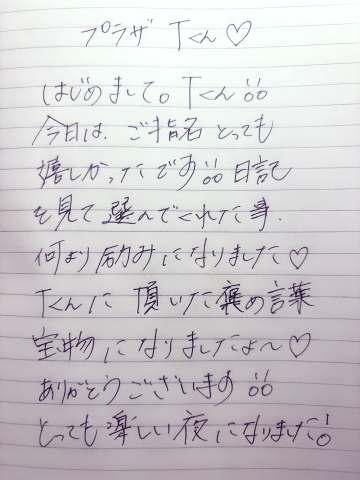 プラザ Tくん♡
はじめまして。Tくん!!
今日は、ご指名 とっても
嬉しかったです!! 日記
を見て 選んでくれた事、
何より 励みになりました♡
Tくんに 頂いた 褒め言葉
宝物 になりましたよ〜♡
ありがとうございます!!
とっても 楽しい 夜 になりました!